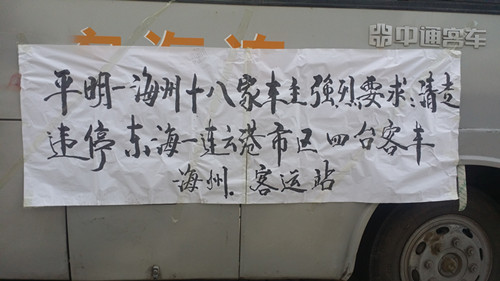 中通客车
平明一海州十八家车主强烈要求:清查
违停东海一连云港市区四台客车
海州.客运站